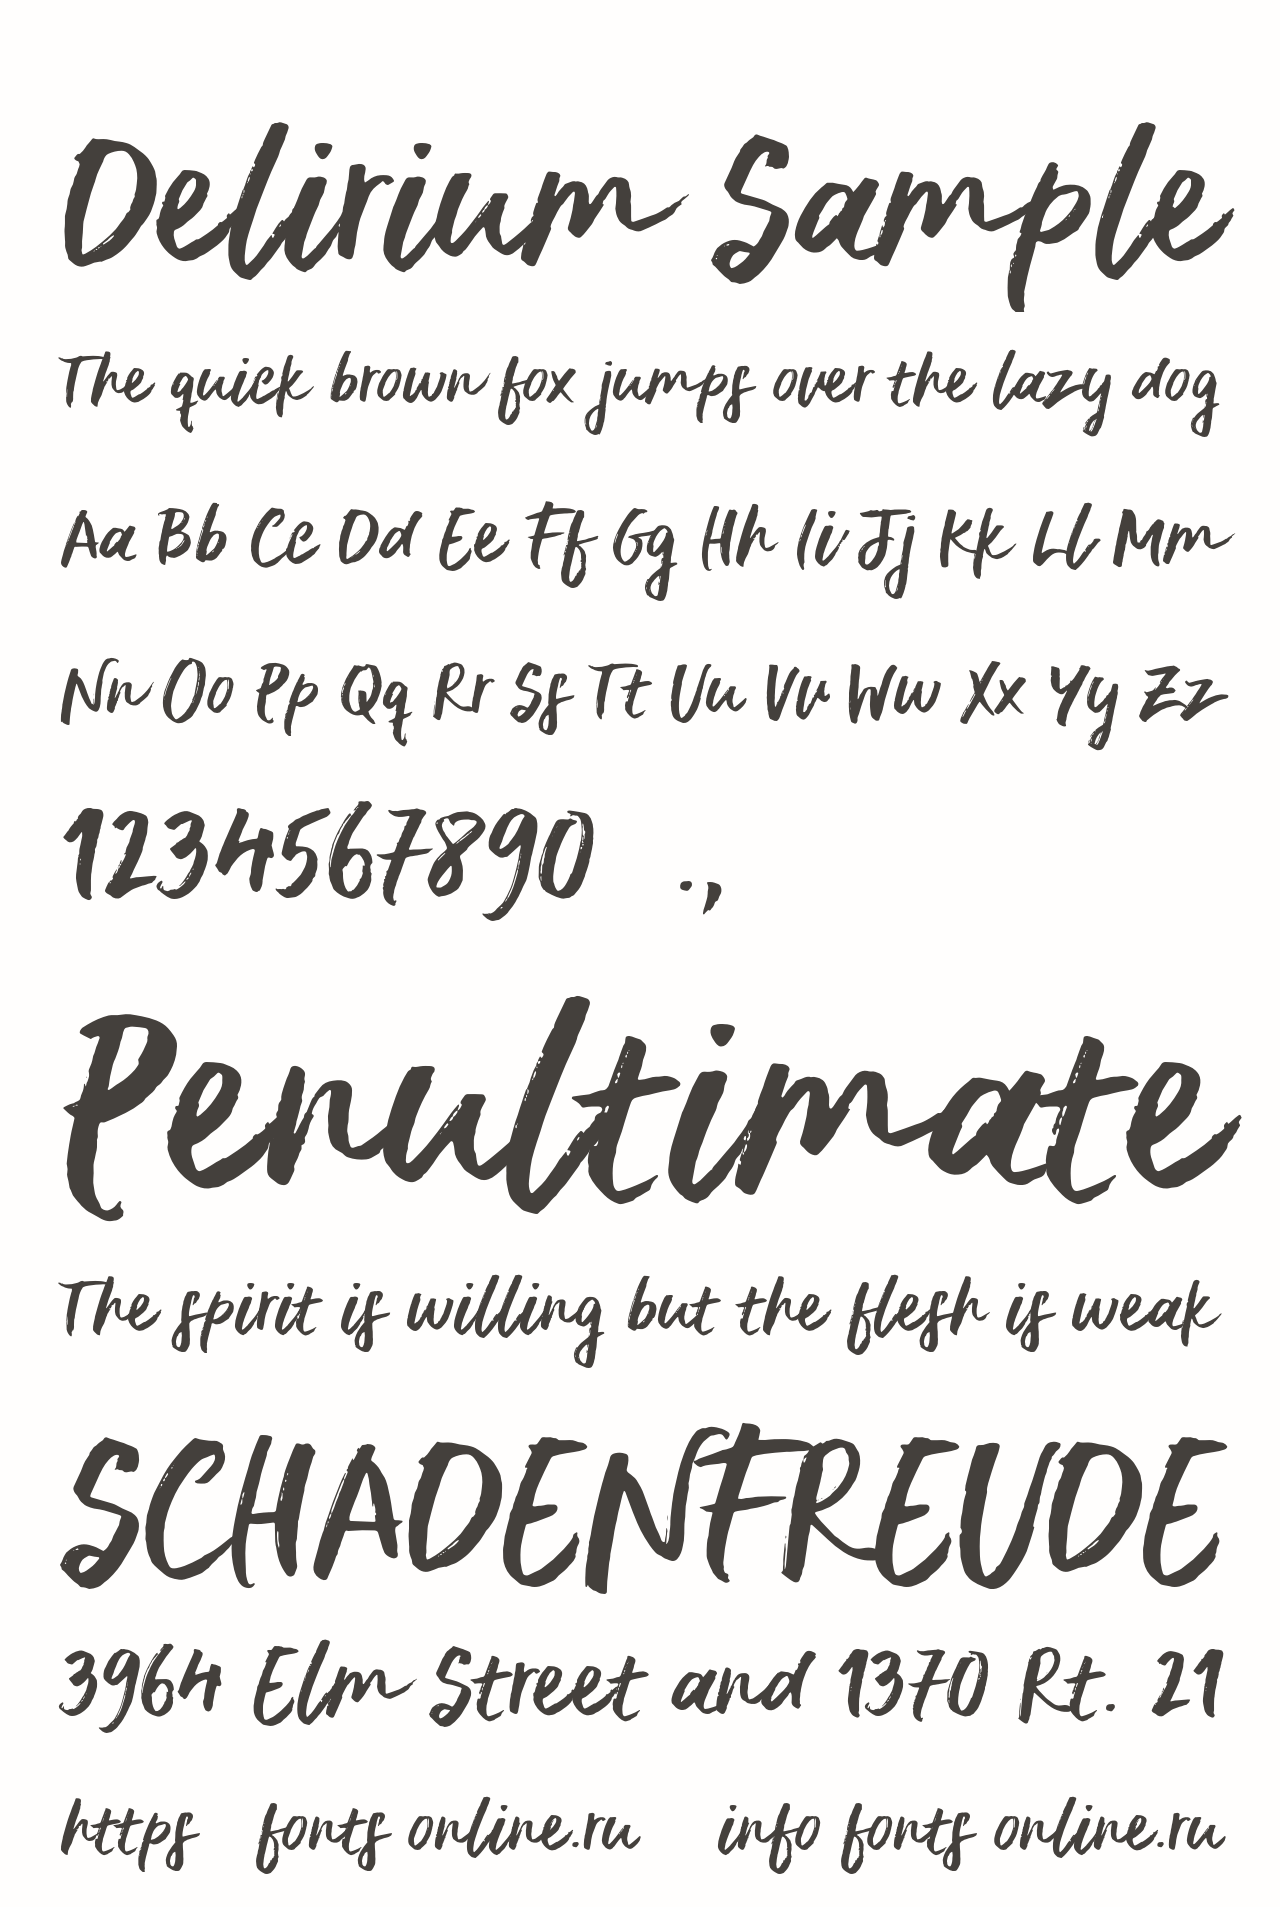 Delirium Sample
The quick brown fox jumps over the lazy dog
Aa Bb Cc Dd Ee Ff Gg Hh Ii Jj Kk Ll Mm
Nn Oo Pp Qq Rr Ss Tt Uu Vv Ww Xx Yy Zz
1234567890 .,
Penultimate
The spirit is willing but the flesh is weak
SCHADENFREUDE
3964 Elm Street and 1370 Rt. 21
https fonts online.ru info fonts online.ru